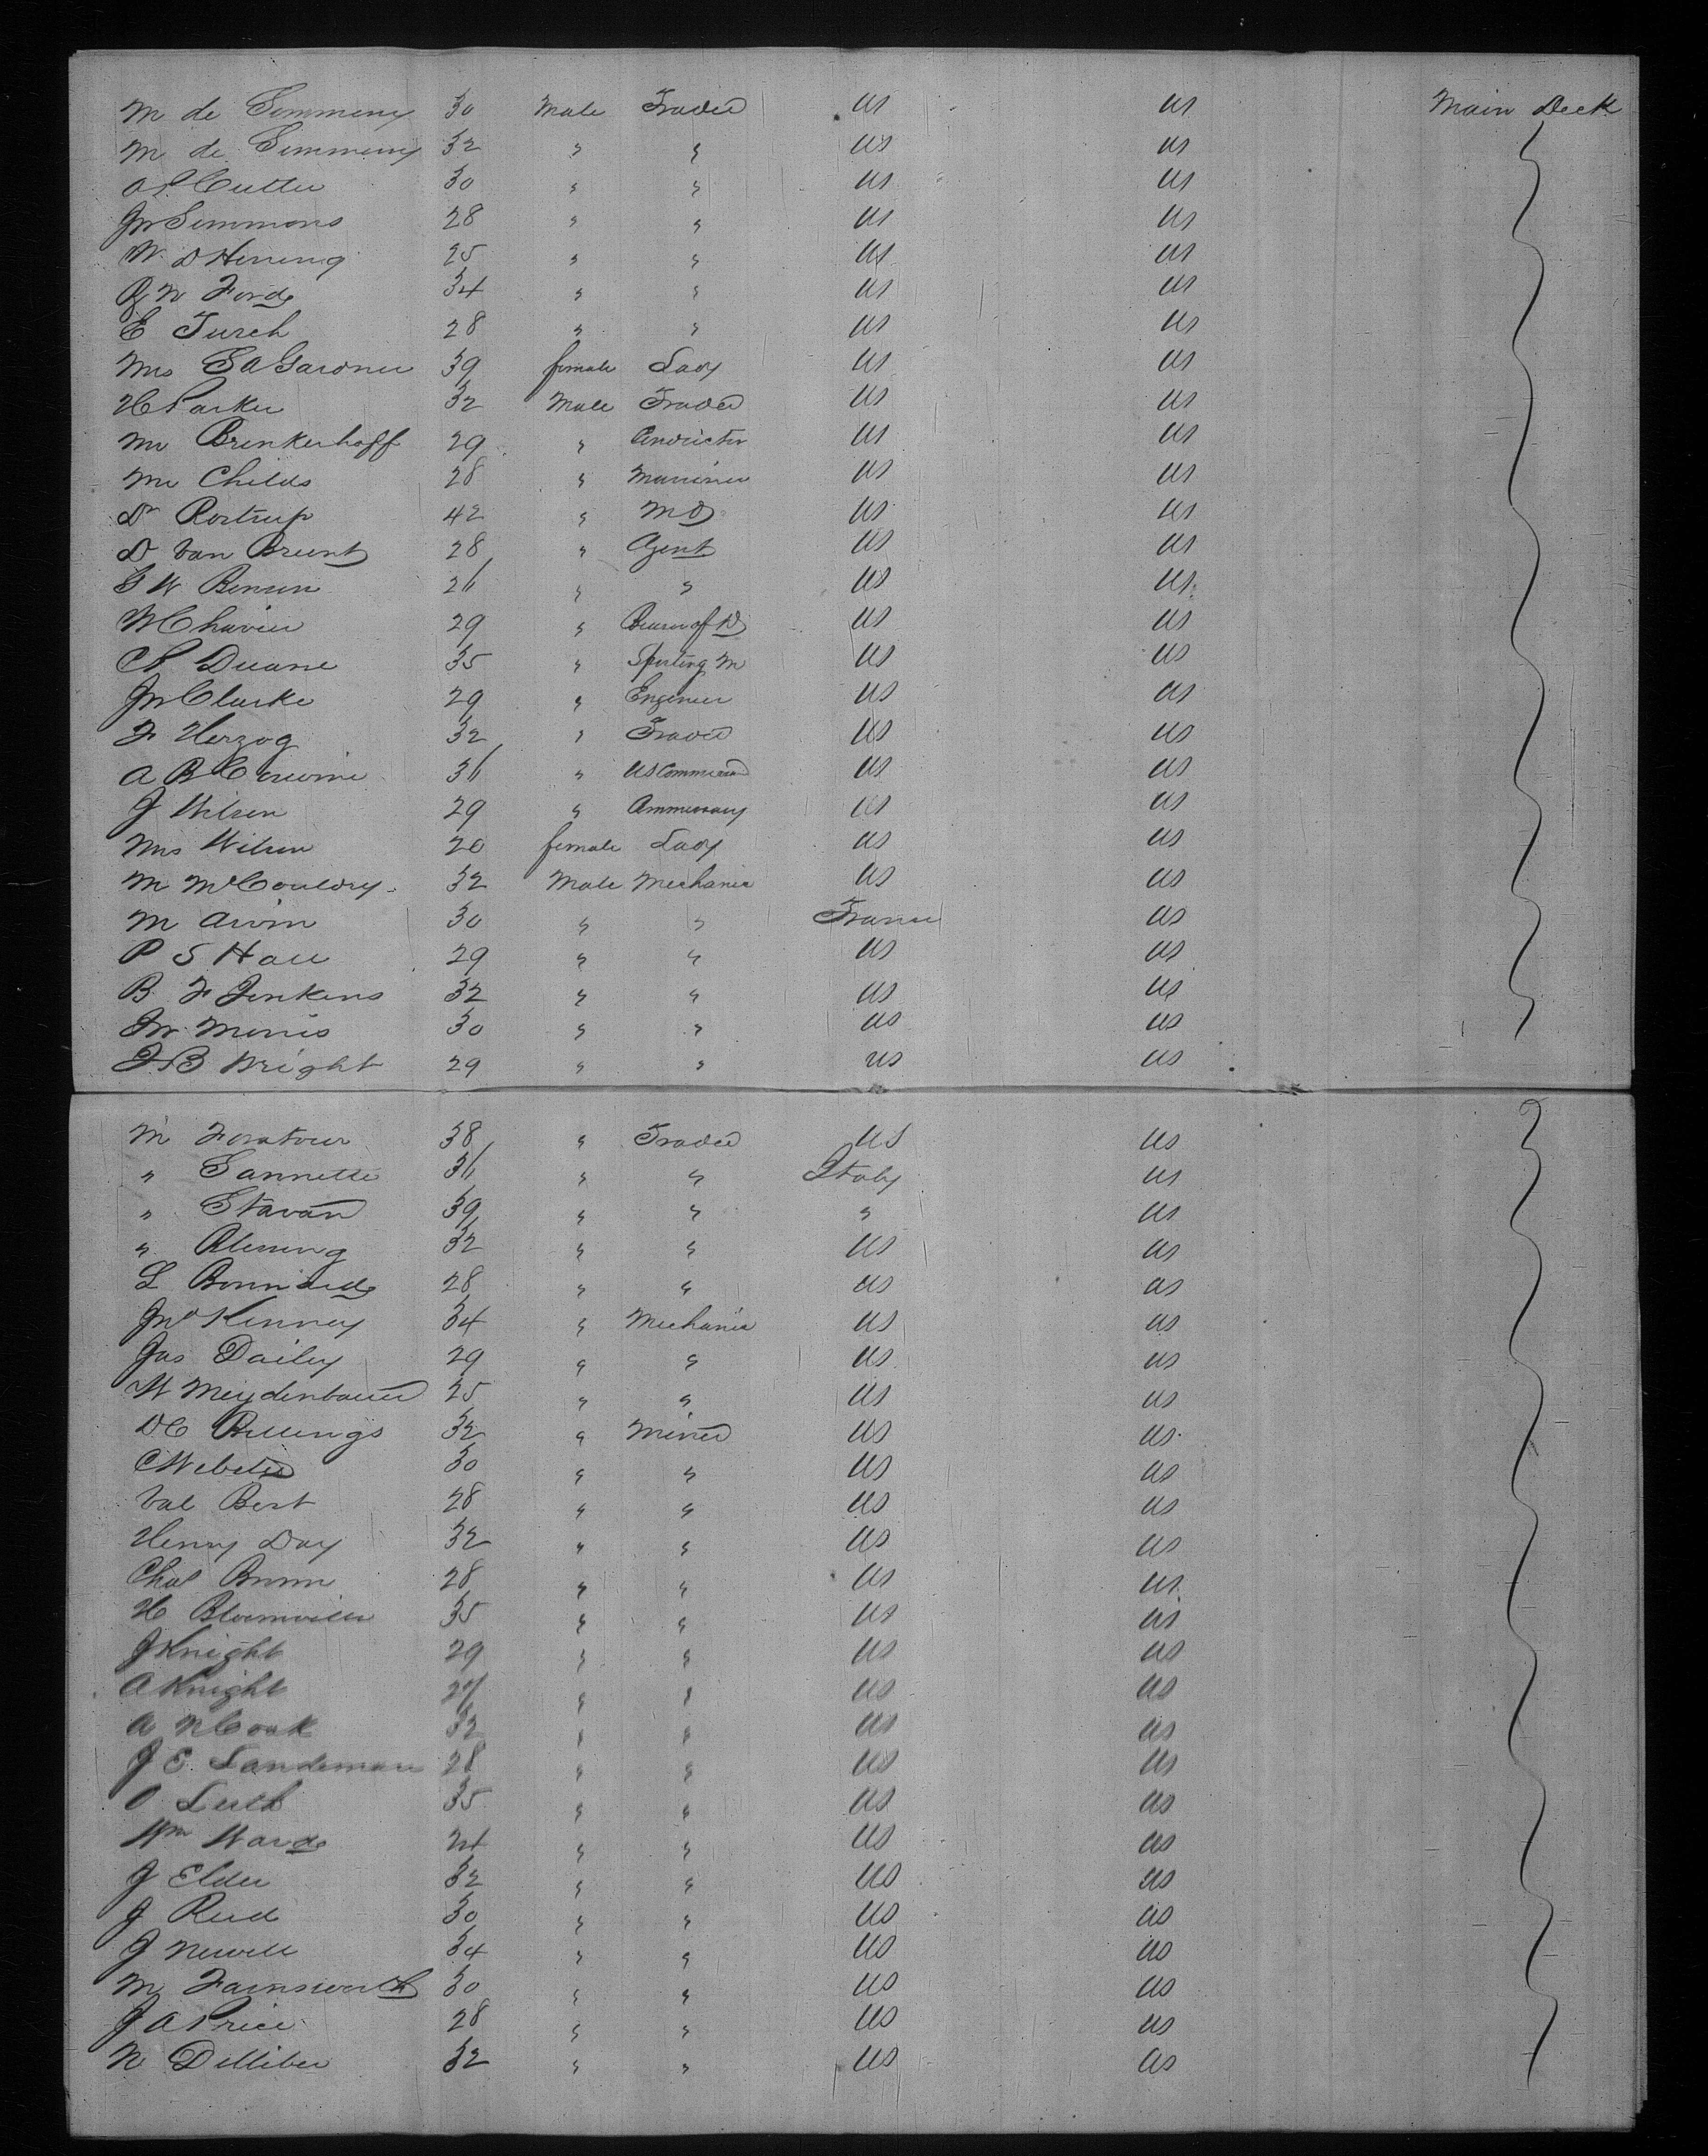 M de Simmeny 30 Male Trader US US Main Deck
M de Simmeny 32 " " US US
O P Cutter 30 " " US US
Jn Simmons 28 " " US US
W D Hening 25 " " US US
R N Ford 34 " " US US
E Turch 28 " " US US
Mrs S A Gardner 39 female Lady US US
H Parker 32 Male Trader US US
Mr Brinkerhoff 29 " Conductor US US
Mr Childs 28 " Mariner US US
Dr Rostrup 42 " MD US US
D Van Brunt 28 " Agent US US
G W Benson 26 " " US US
W Chavier 29 " Bearer of D US US
C P Duane 35 " Sporting M US US
Jn Clarke 29 " Engineer US US
F Herzog 32 " Trader US US
A B Corwine 36 " US Commissnd US US
J Wilson 29 " Commissary US US
Mrs Wilson 20 female Lady US US
M McCouldry 32 Male Mechanic US US
M Arvin 30 " " France US
P S Hall 29 " " US US
B F Jenkins 32 " " US US
Jn Morris 30 " " US US
J B Wright 29 " " US US
M Foratour 38 " Trader US US
" Sannette 36 " " Italy US
" Stavan 39 " " " US
" Blessing 32 " " US US
L Bonnard 28 " " US US
Jno Kenney 34 " Mechanic US US
Jas Dailey 29 " " US US
W Meydenbauer 25 " " US US
D C Billings 32 " Miner US US
C Webster 30 " " US US
Val Best 28 " " US US
Henry Day 32 " " US US
Chas Brown 28 " " US US
H Bloomviller 35 " " US US
J Knight 29 " " US US
A Knight 27 " " US US
A N Cook 32 " " US US
J E Landeman 28 " " US US
O Luth 35 " " US US
Wm Ward 24 " " US US
J Elder 32 " " US US
J Reed 30 " " US US
J Newell 34 " " US US
M Farnsworth 30 " " US US
J A Price 28 " " US US
N Delliber 32 " " US US